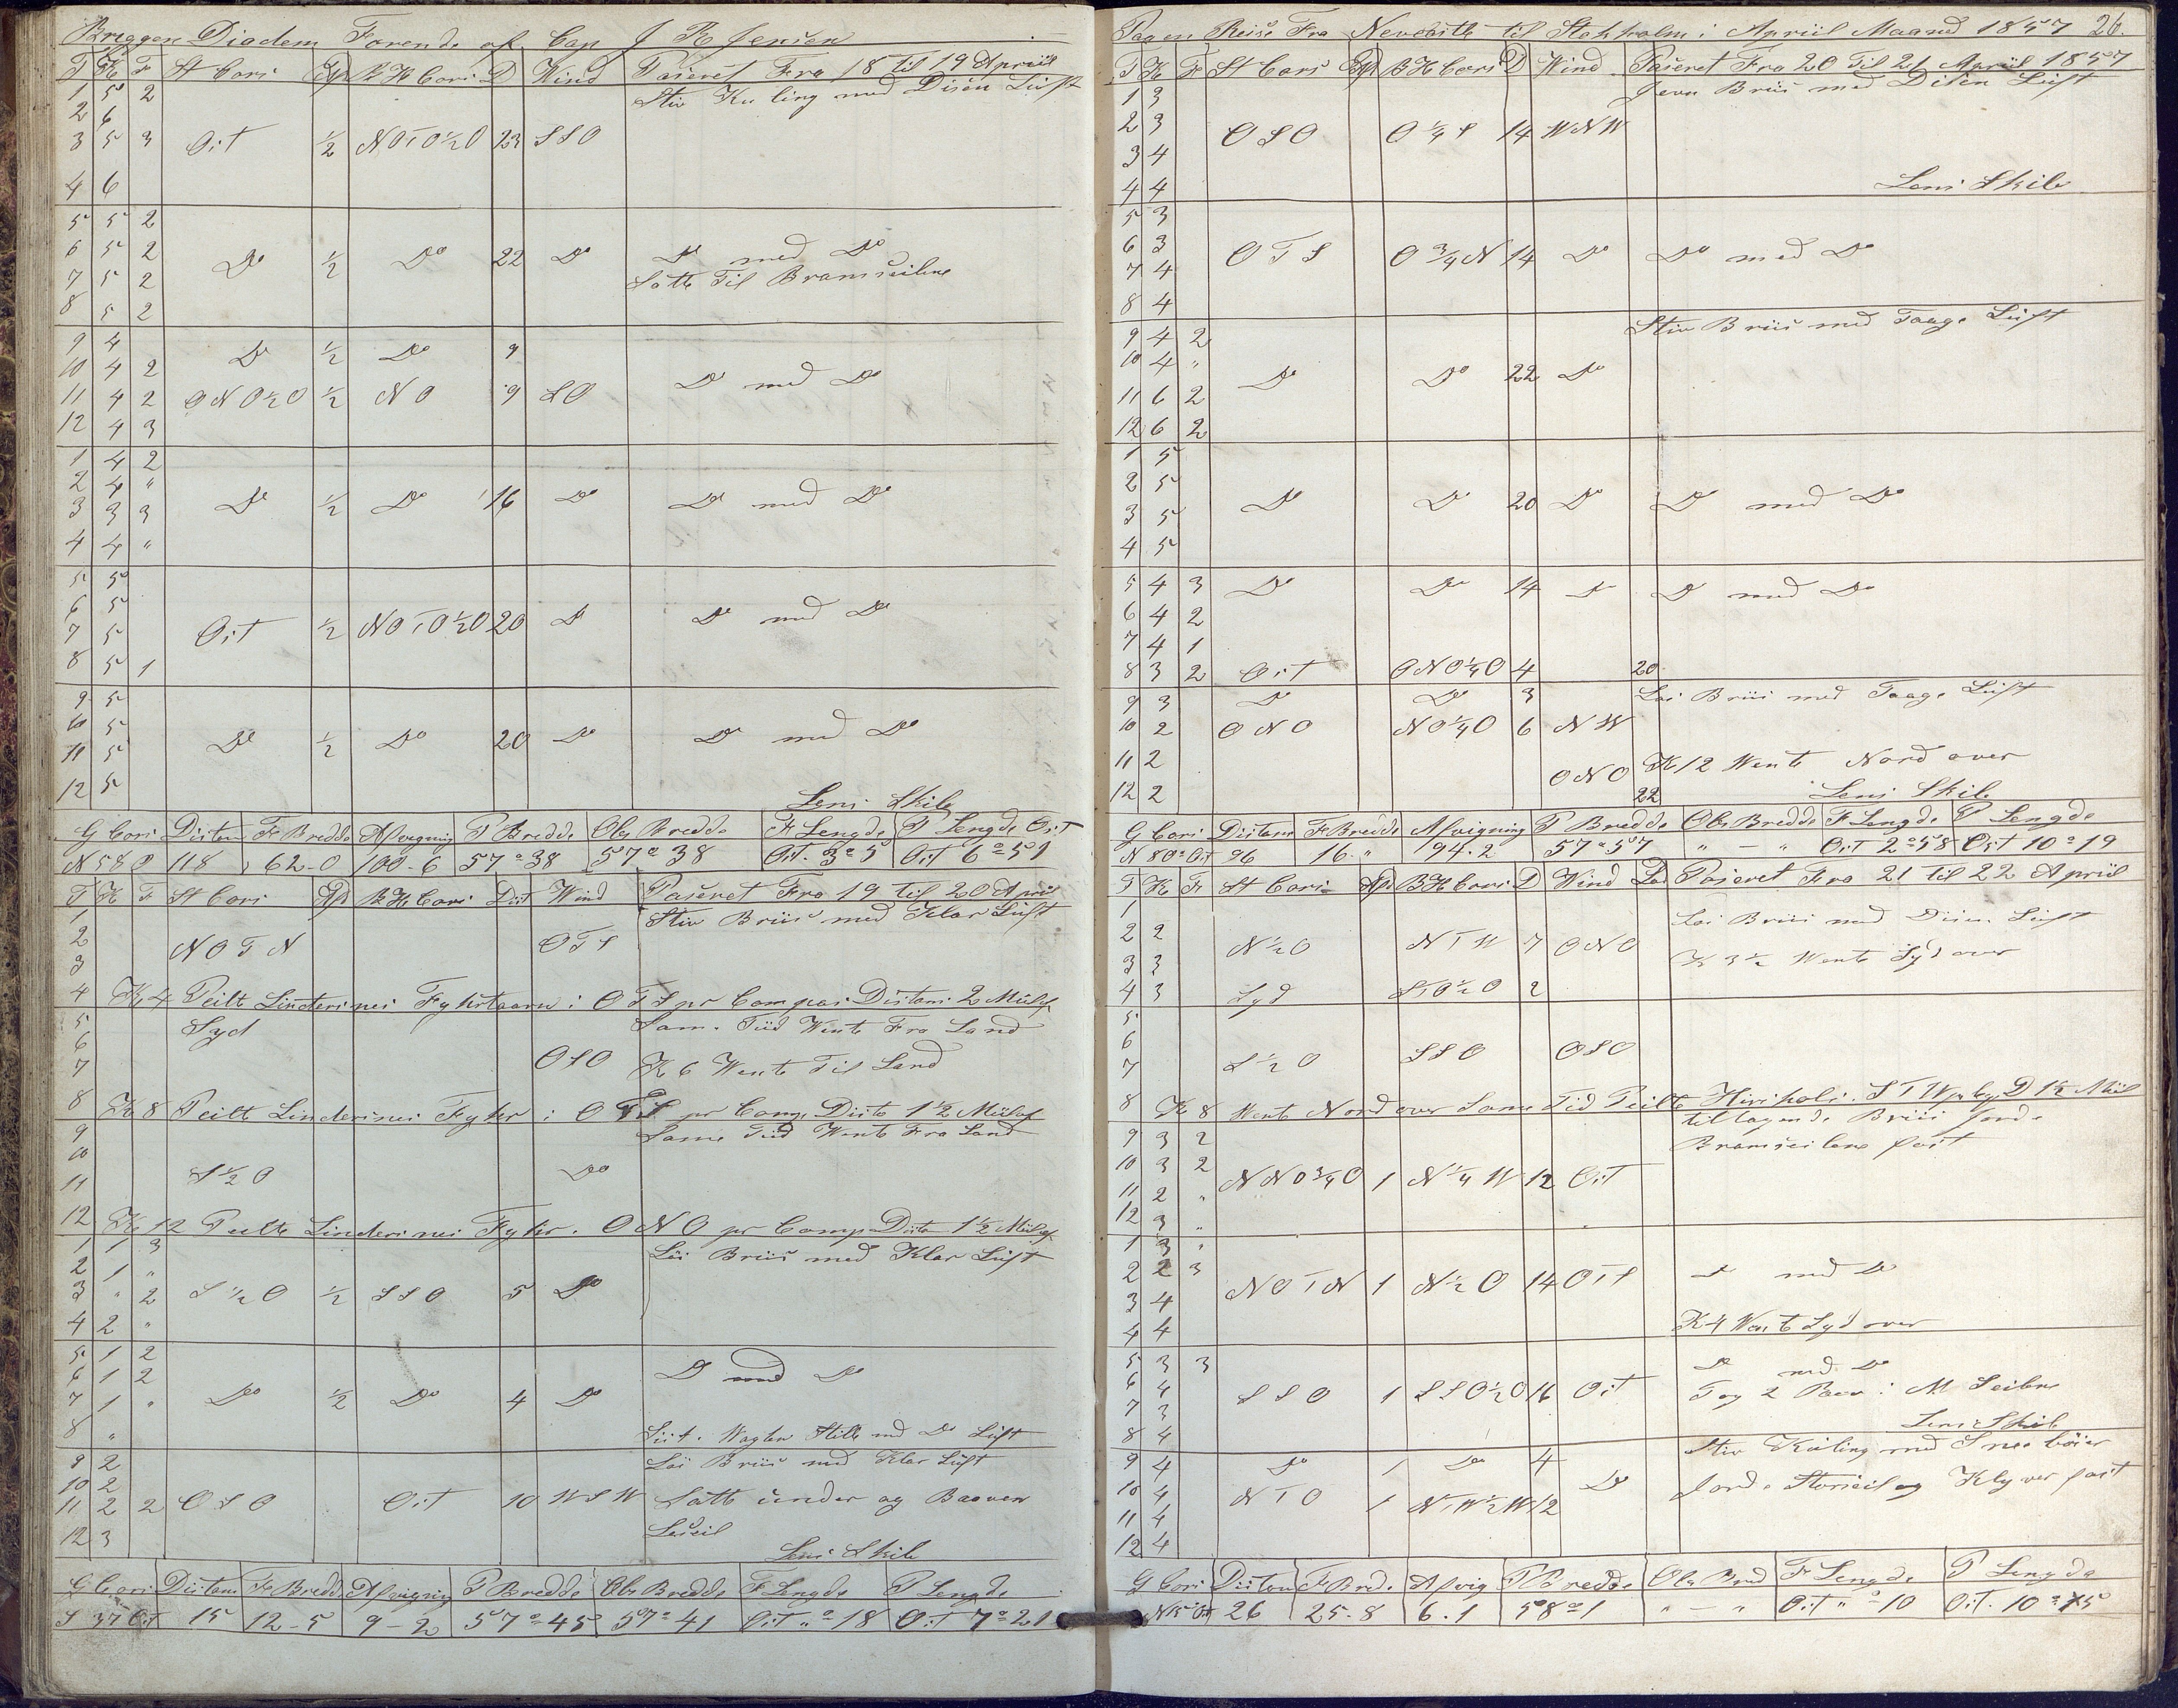 Briggen Diadem Førende af Cap J R Jensen
T K F St Cors Afd B H Cors D Wind Paseret Fra 18 til 19 Apriil
1 5 2 Stiv Kuling med Disen Luft
2 6
3 5 3 Ost ½ NOTO½O 23 SSO
4 6
5 5 2
6 5 2 Do ½ Do 22 Do Do med Do
7 5 2 Satte Til Bramseilene
8 5 2
9 4 Do ½ Do 9
10 4 2 Do med Do
11 4 2 ONO½O ½ NO 9 SO
12 4 3
1 4 2
2 4 "
3 3 3 Do ½ Do 16 Do Do med Do
4 4 "
5 5
6 5
7 5 Ost ½ NOTO½O 20 Do Do med Do
8 5 1
9 5
10 5
11 5 Do ½ Do 20 Do Do med Do
12 5 Lens Skib
G Cors Distans F Bredde Afvigning P Bredde Obs Bredde F Lengde P Lengde Ost
N 58 O 118 62-0 100-6 57°38 57°38 Ost. 3°5 Ost 6°51
T K F St Cors Afd B H Cors Dist Wind Paseret Fra 19 til 20 April
1 Stiv Briis med Klar Luft
2 NOTN OTS
3
4 K 4 Peilt Lindesnes Fyhrtaarn i OTS pr Compas Distans 2 Miil af
5 Syd Sam. Tiid Wente Fra Land
6 OSO K 6 Wente Til Land
7
8 K 8 Peilt Lindesnes Fyhr i OTS pr Comp Dist 1½ Miil af
9 Same Tiid Wente Fra Land
10
11 S½O Do
12 K 12 Peilte Lindesnes Fyhr. ONO pr Comp Dista 1½ Miil af
1 1 3 Løi Briis med Klar Luft
2 1 "
3 " 2 S½O ½ SSO 5 Do
4 2 "
5 1 2
6 1 2 Do med Do
7 1 " Do ½ Do 4 Do
8 " Sist. Wagten Stille med Do Luft
9 2 Løi Briis med Klar Luft
10 2
11 2 2 OSO Ost 10 WSW Satte under og Baaven
12 3 Leseil
Lens Skib
G Cors Distans F Bredde Afvigning P Bredde Obs Bredde F Lengde P Lengde
S 37 Ost 15 12-5 9-2 57°45 57°41 Ost "°18 Ost 7°21
Paa en Reise Fra Newcastle til Stokholm i Apriil Maaned 1857 26.
T K F St Cors Afd B H Cors D Wind Paseret Fra 20 Til 21 Apriil 1857
1 3 Jevn Briis med Disen Luft
2 3 OSO O¼S 14 WNW
3 4
4 4 Lens Skib
5 3
6 3 OTS O¾N 14 Do Do med Do
7 4
8 4
9 4 2 Stiv Briis med Taage Luft
10 4 " Do Do 22 Do
11 6 2
12 6 2
1 5
2 5 Do Do 20 Do Do med Do
3 5
4 5
5 4 3 Do Do 14 Do Do med Do
6 4 2
7 4 1
8 3 2 Ost ONO¼O 4 20
9 3 Do Do 3 Løi Briis med Taage Luft
10 2 ONO NO¼O 6 NW
11 2 ONO K 12 Wente Nord over
12 2 22 Lens Skib
G Cors Distans F Bredde Afvigning P Bredde Obs Bredde F Lengde P Lengde
N 80° Ost 96 16-" 94-2 57°57 " - " Ost 2°58 Ost 10°19
T K F St Cors Afd B H Cors D Wind Lod Paseret Fra 21 til 22 Apriil
1 Løi Briis med Diisen Luft
2 2 N½O NTW 7 ONO
3 3 K 3½ Wente Syd over
4 3 Syd STO½O 2
5
6
7 S½O SSO OSO
8 K 8 Wente Nord over Same Tid Peilte Hirshols. STW pr Comp D 1½ Miil
9 3 2 tiltagende Briis giorde
10 3 2 Bramseilene fast
11 2 " NNO¾O 1 N¼W 12 Ost
12 3 "
1 3 "
2 2 3 NOTN 1 N½O 14 OTS Do med Do
3 4
4 4 K 4 Wente Syd over
5 3 3 Do med Do
6 4 SSO 1 SSO½O 16 Ost Tog 2 Reev i M Seilene
7 3
8 4 Lens Skib
9 4 Do 1 Do 4 Stiv Kuling med Snee böier
10 4 NTO 1 NTW½W 12 Do giorde Storseil og Klyver fast
11 4
12 4
G Cors Distans F Bred. Afvig P Bredde Obs Bred F Lengde P Lengde
N 15° Ost 26 25-8 6.1 58°1 " - " Ost "°10 Ost. 10°15